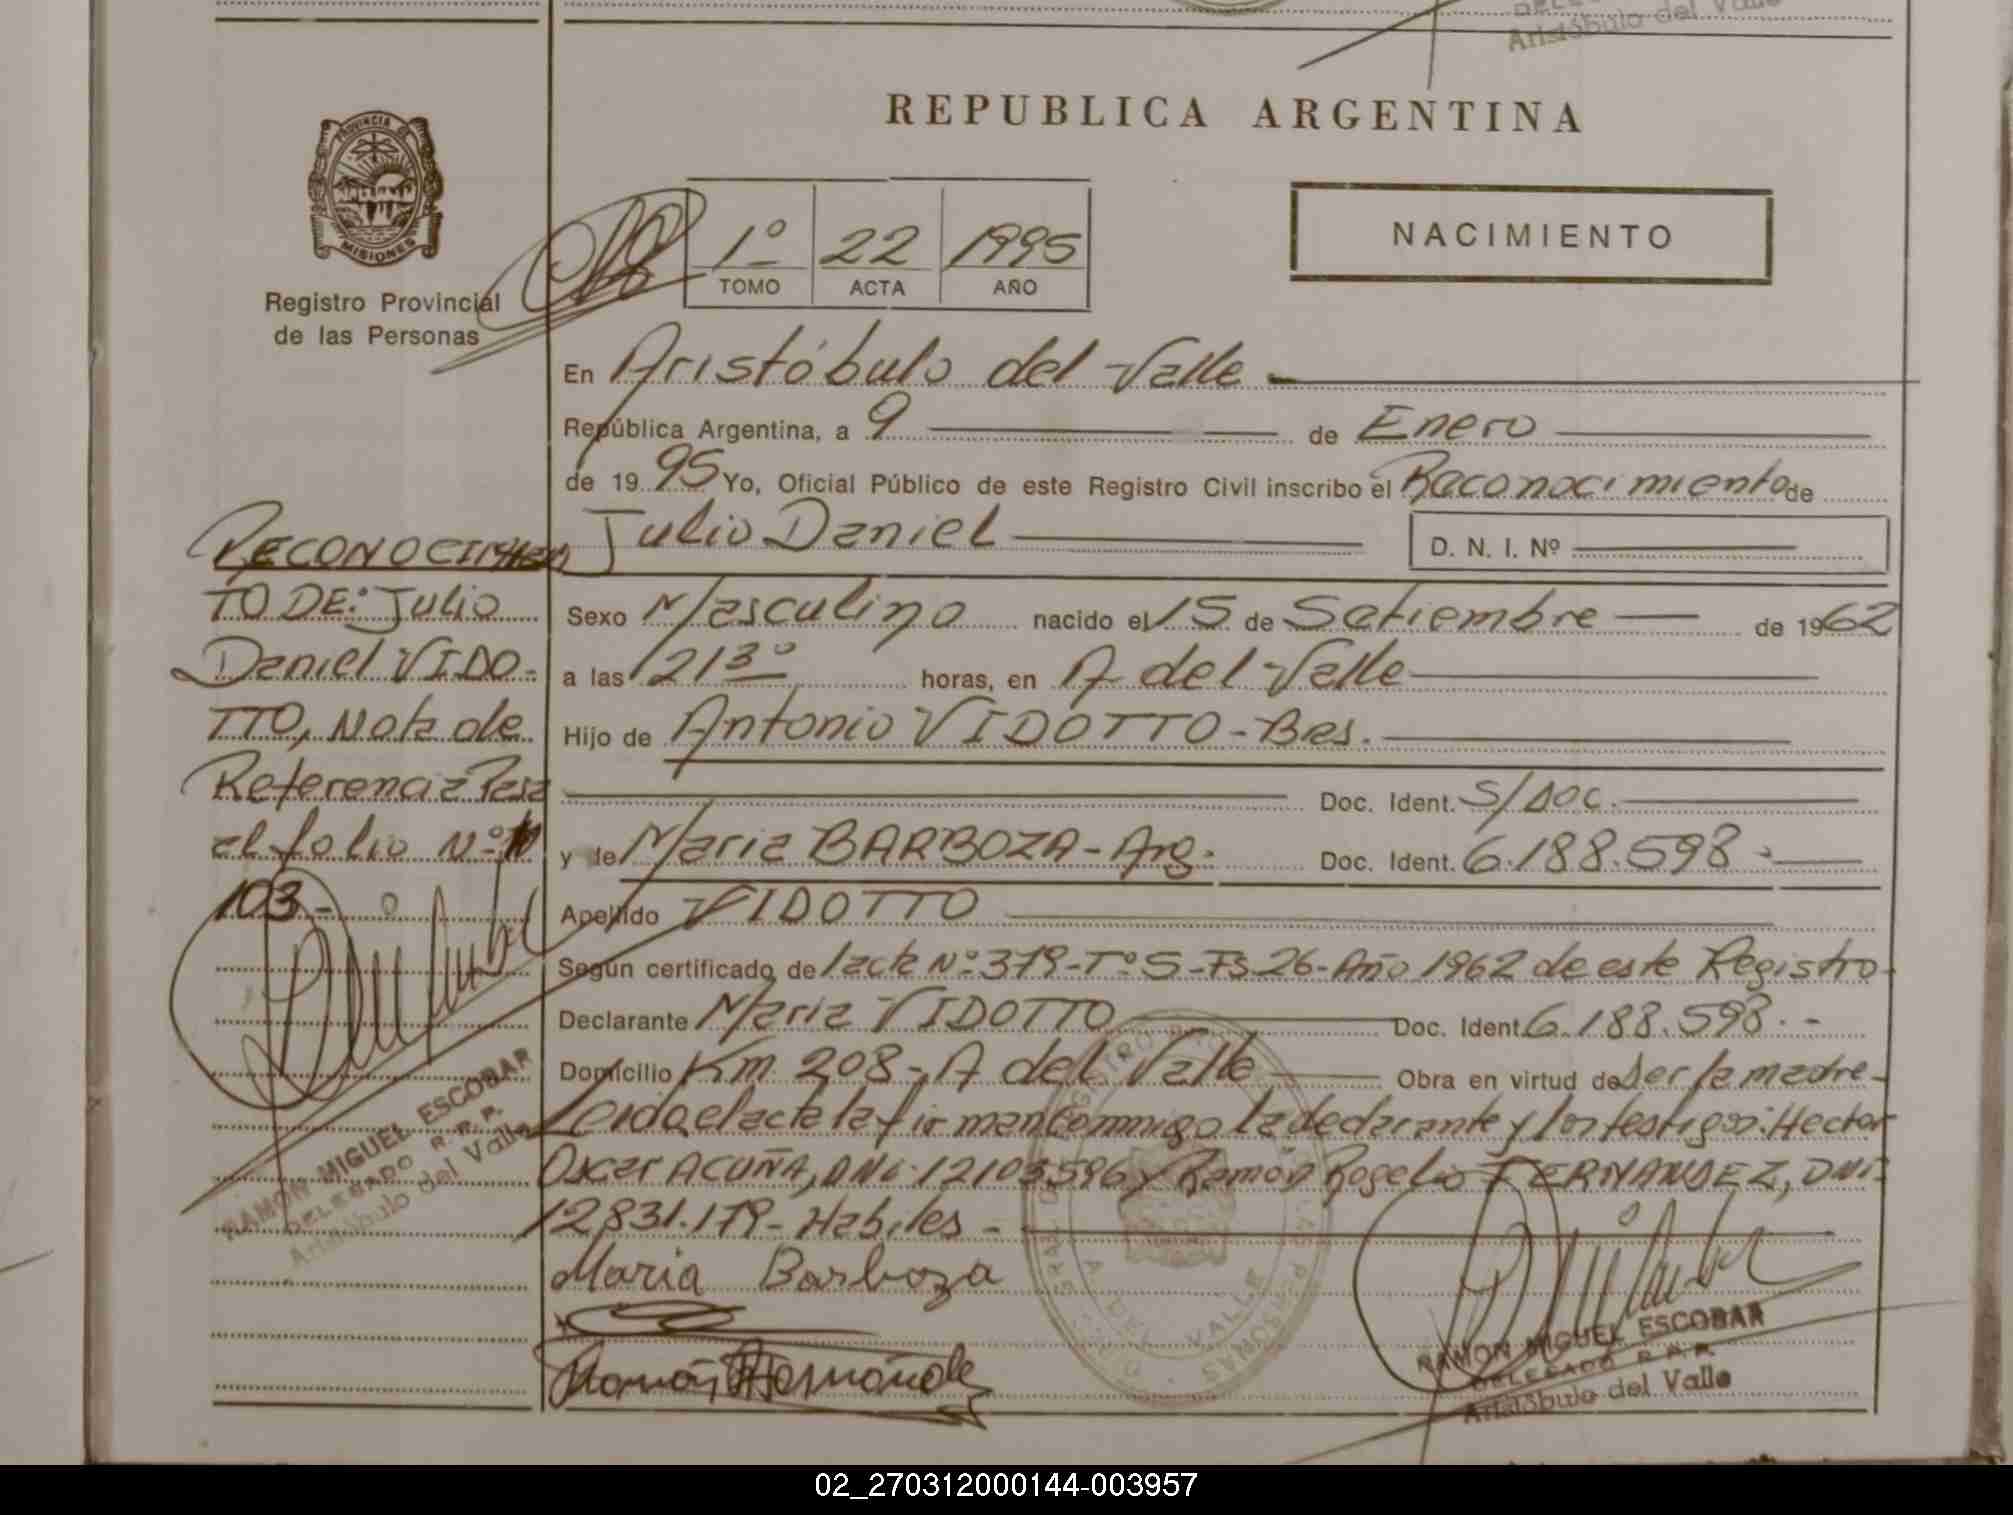 Aristóbulo del Valle
REPUBLICA ARGENTINA
PROVINCIA DE
MISIONES
Registro Provincial
de las Personas
1º 22 1995
TOMO ACTA AÑO
NACIMIENTO
En Aristóbulo del Valle
República Argentina, a 9 de Enero
de 1995 Yo, Oficial Público de este Registro Civil inscribo el Reconocimiento de
Julio Daniel D. N. I. Nº
Sexo Masculino nacido el 15 de Setiembre de 1962
a las 21 3º horas, en A del Valle
Hijo de Antonio VIDOTTO - Bras.
Doc. Ident. S/Doc.
y de Maria BARBOZA - Arg. Doc. Ident. 6.188.598.-
Apellido VIDOTTO
Según certificado de acta Nº 379 - Tº 5 - Fs 26 - Año 1962 de este Registro.
Declarante Maria VIDOTTO Doc. Ident. 6.188.598.-
Domicilio Km. 208 - A del Valle Obra en virtud de ser la madre -
Leida el acta la firman conmigo la declarante y los testigos: Hector
Oscar ACUÑA, DNI. 12103596 y Ramón Rogelio FERNANDEZ, DNI
12.831.179 - Habiles -
Maria Barboza
RECONOCIMIEN
TO DE: Julio
Daniel VIDO-
TTO, Nota de
Referencia Pasa
al folio Nº
103.-
RAMON MIGUEL ESCOBAR
DELEGADO R. R. P.
Aristóbulo del Valle
A DEL VALLE
RAMON MIGUEL ESCOBAR
DELEGADO R. R. P.
Aristóbulo del Valle
02_270312000144-003957